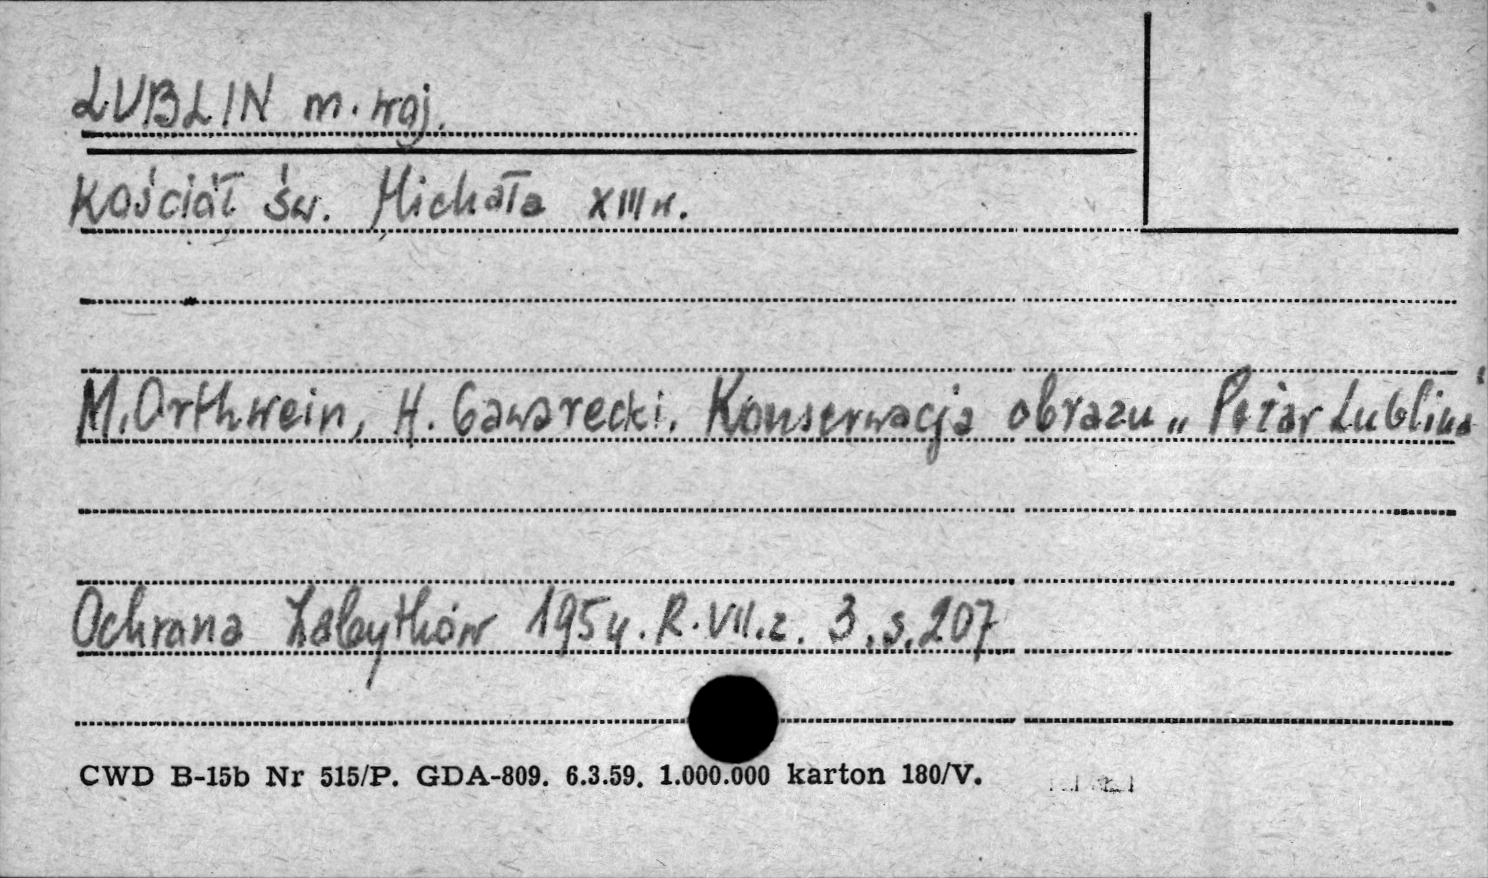 LUBLIN m. woj.
Kościół św. Michała XIII w.
M. Orthwein, H. Gawarecki. Konserwacja obrazu „Pożar Lublina"
Ochrona Zabytków 1954. R. VII. z. 3. s. 207
CWD B-15b Nr 515/P. GDA-809. 6.3.59. 1.000.000 karton 180/V.